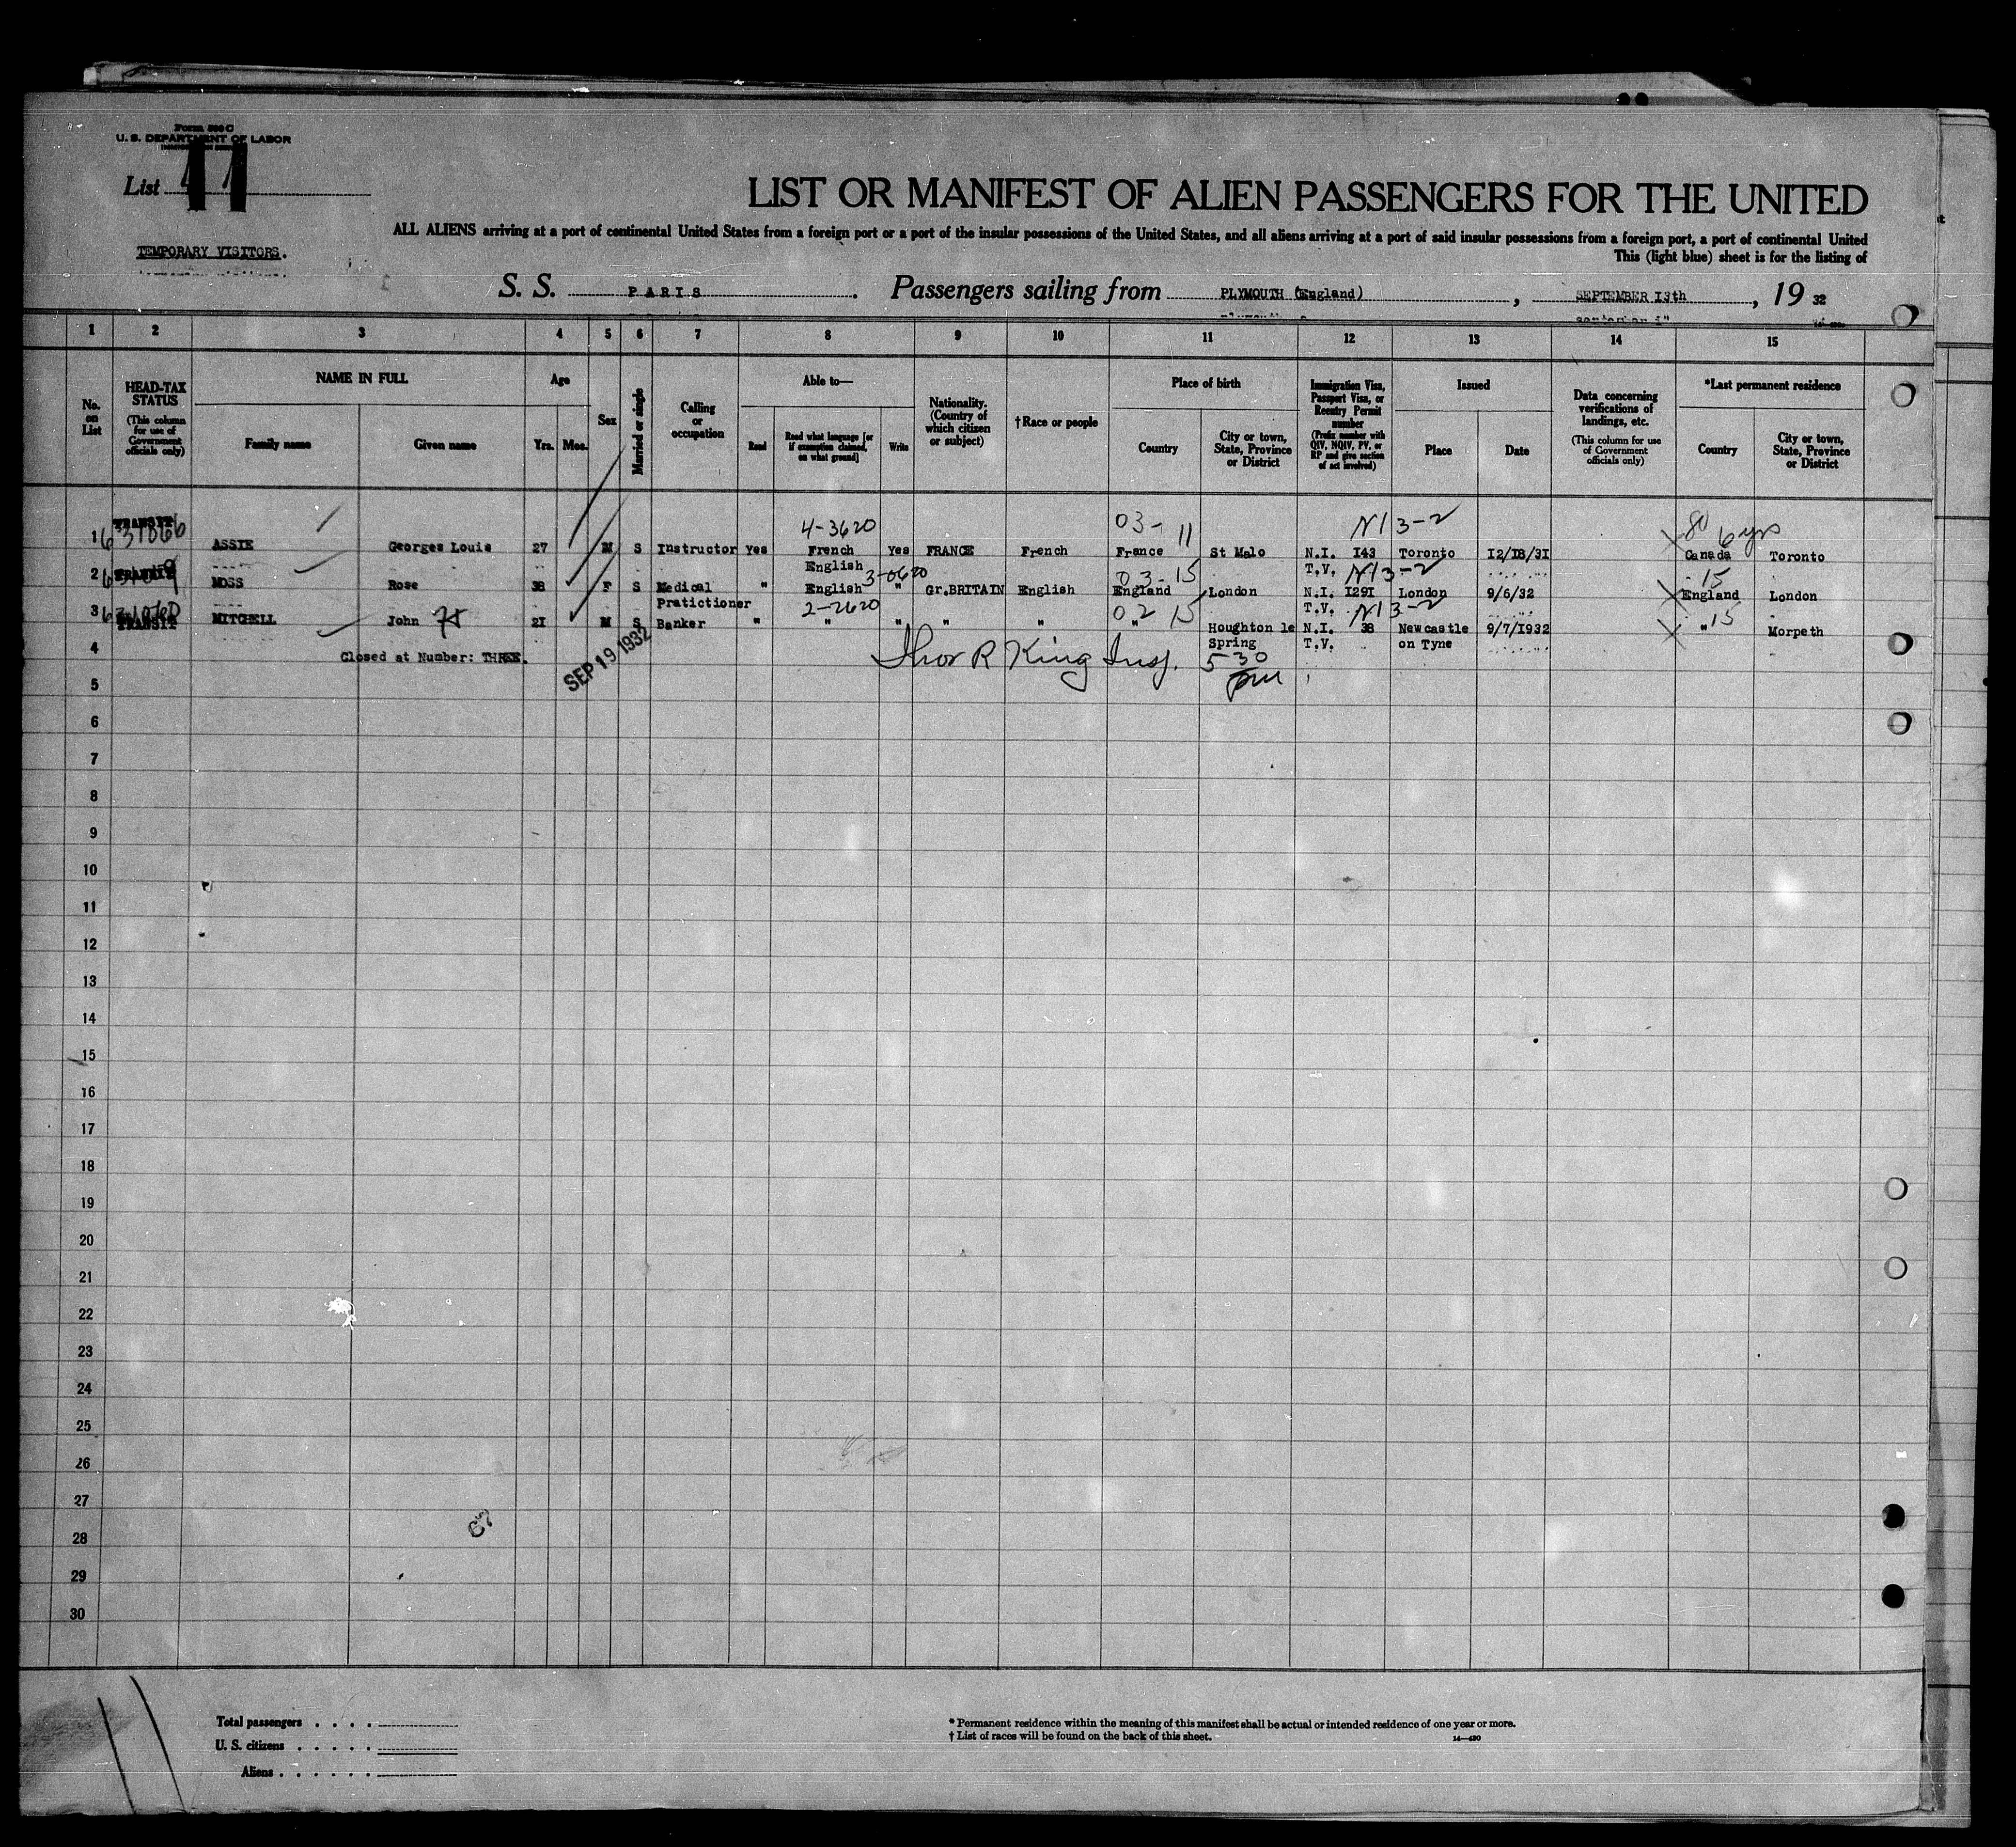 Form 500 C
U. S. DEPARTMENT OF LABOR
List 11
LIST OR MANIFEST OF ALIEN PASSENGERS FOR THE UNITED
ALL ALIENS arriving at a port of continental United States from a foreign port or a port of the insular possessions of the United States, and all aliens arriving at a port of said insular possessions from a foreign port, a port of continental United
TEMPORARY VISITORS.
This (light blue) sheet is for the listing of
S. S. PARIS. Passengers sailing from PLYMOUTH (England), SEPTEMBER 13th, 19 32
1 2 3 4 5 6 7 8 9 10 11 12 13 14 15
No. on List
HEAD-TAX STATUS (This column for use of Government officials only)
NAME IN FULL
Family name Given name
Age
Yrs. Mos.
Sex
Married or single
Calling or occupation
Able to—
Read Read what language [or if exemption claimed, on what ground] Write
Nationality. (Country of which citizen or subject)
†Race or people
Place of birth
Country City or town, State, Province or District
Immigration Visa, Passport Visa, or Reentry Permit number (Prefix number with QIV, NQIV, PV, or RP and give section of act involved)
Issued
Place Date
Data concerning verifications of landings, etc. (This column for use of Government officials only)
*Last permanent residence
Country City or town, State, Province or District
TRANSIT 4-3620 03-11 N13-2 80 6 yrs
1 ASSIE Georges Louis 27 M S Instructor Yes French Yes FRANCE French France St Malo N.I. 143 Toronto 12/18/31 Canada Toronto
English T.V.
TRANSIT 3-0620 03-15 N13-2 15
2 MOSS Rose 38 F S Medical " English " Gr.BRITAIN English England London N.I. 1291 London 9/6/32 England London
Pratictioner T.V.
631060 2-2620 02 15 N13-2 15
3 TRANSIT MITCHELL John 21 M S Banker " " " " " " Houghton le N.I. 38 Newcastle 9/7/1932 " Morpeth
Spring T.V. on Tyne
4 Closed at Number: THREE.
SEP 19 1932
Thor R King Insp. 5 30 pm
5
6
7
8
9
10
11
12
13
14
15
16
17
18
19
20
21
22
23
24
25
26
27
28
29
30
67
Total passengers . . . .
U. S. citizens . . . . .
Aliens . . . . . .
* Permanent residence within the meaning of this manifest shall be actual or intended residence of one year or more.
† List of races will be found on the back of this sheet.
14—430